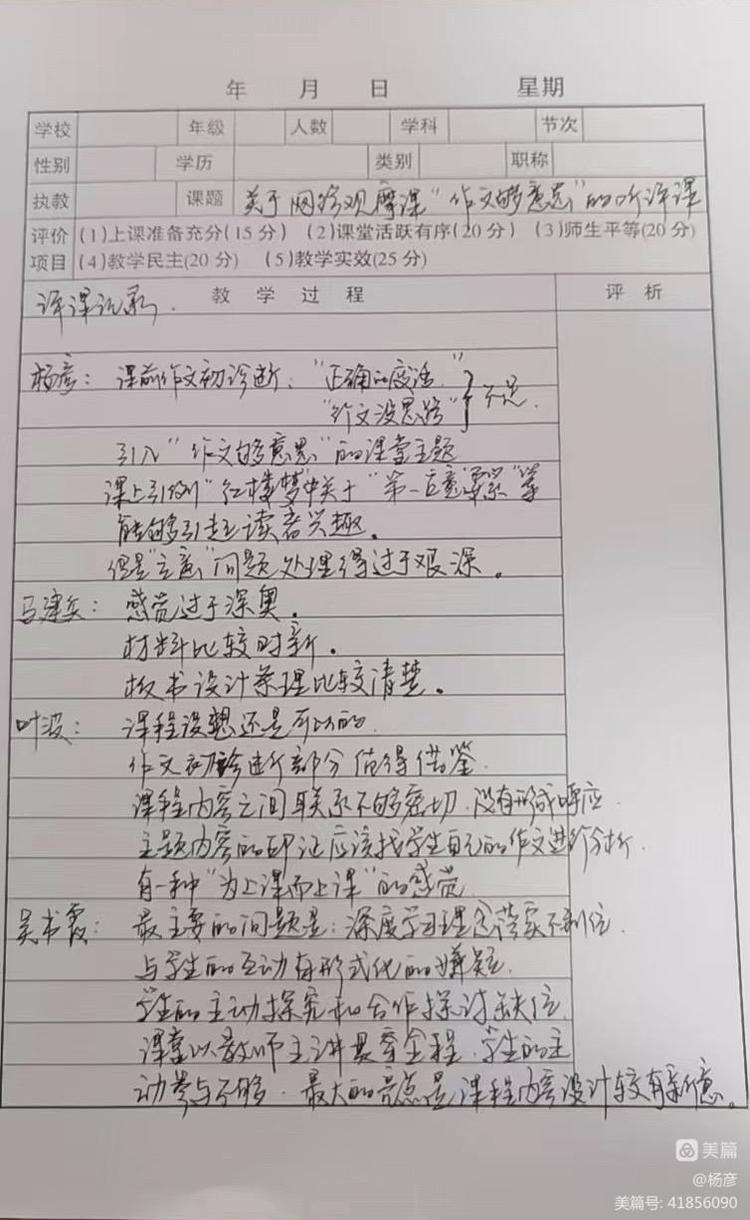 年 月 日 星期
学校 年级 人数 学科 节次
性别 学历 类别 职称
执教 课题 关于网络观摩课“作文够意思”的听评课
评价 (1)上课准备充分(15分) (2)课堂活跃有序(20分) (3)师生平等(20分)
项目 (4)教学民主(20分) (5)教学实效(25分)
评课记录. 教学过程 评析
杨彦: 课前作文初诊断、“正确的废话.”
“作文没思路” 不足.
引入“作文够意思”的课堂主题
课上引例“红楼梦”中关于“第一立意要紧”等
能够引起读者兴趣.
但是“立意”问题处理得过于艰深.
感觉过于深奥.
材料比较时新.
板书设计条理比较清楚.
叶波: 课程设想还是可以的.
作文初诊断部分值得借鉴.
课程内容之间联系不够密切.没有形成呼应.
主题内容的印证应该找学生自己的作文进行分析.
有一种“为上课而上课”的感觉.
吴书霞: 最主要的问题是:深度学习理念落实不到位.
与学生的互动有形式化的嫌疑.
学生的主动探究和合作探讨缺位.
课堂以教师主讲贯穿全程.学生的主
动参与不够.最大的亮点是课程内容设计较有新意.
美篇
@杨彦
美篇号: 41856090